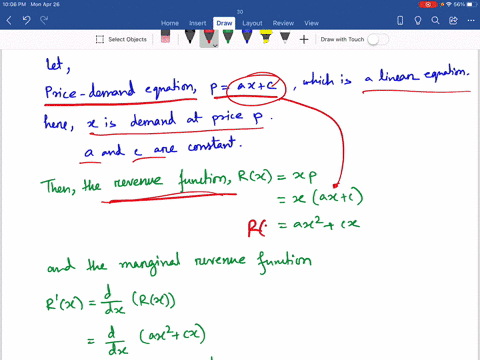 10:06 PM Mon Apr 26
56%
30
Home Insert Draw Layout Review View
Select Objects
Draw with Touch
let,
Price-demand equation, p = ax+c, which is a linear equation.
here, x is demand at price p.
a and c are constant.
Then, the revenue function, R(x) = xp
= x (ax+c)
R( = ax² + cx
and the marginal revenue function
R'(x) = d/dx (R(x))
= d/dx (ax²+cx)